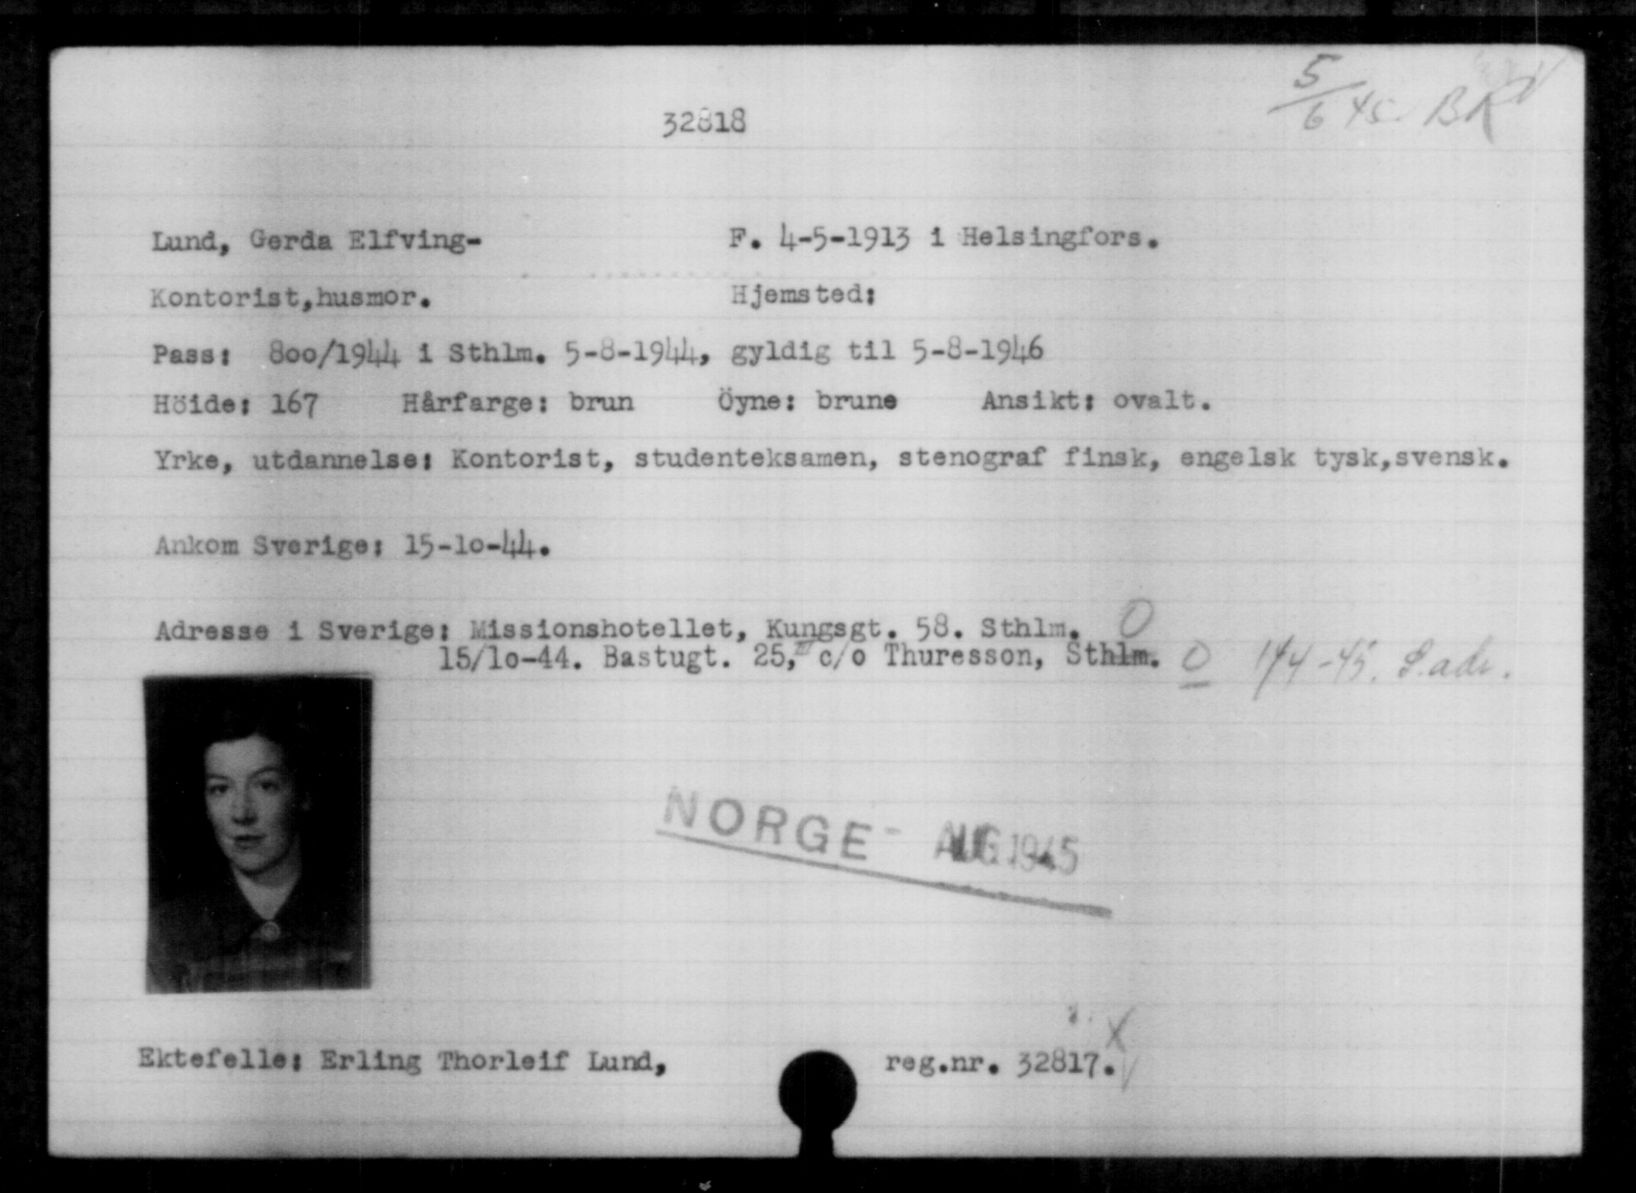 5/6 45. BK
32818
Lund, Gerda Elfving- F. 4-5-1913 i Helsingfors.
Kontorist,husmor. Hjemsted:
Pass: 8oo/1944 i Sthlm. 5-8-1944, gyldig til 5-8-1946
Höide: 167 Hårfarge: brun Öyne: brune Ansikt: ovalt.
Yrke, utdannelse: Kontorist, studenteksamen, stenograf finsk, engelsk tysk,svensk.
Ankom Sverige: 15-1o-44.
Adresse i Sverige: Missionshotellet, Kungsgt. 58. Sthlm. O
15/1o-44. Bastugt. 25, III c/o Thuresson, Sthlm. O 1/4-45. S.adr.
NORGE - AUG 1945
Ektefelle: Erling Thorleif Lund, reg.nr. 32817. X